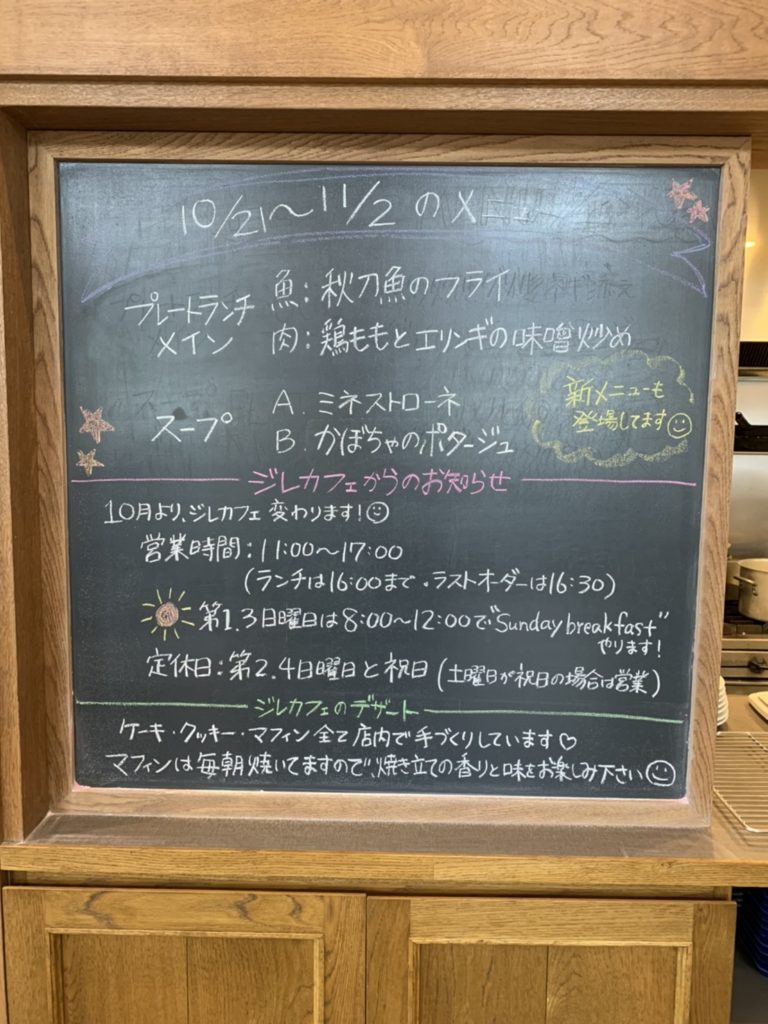 10/21〜11/2 のメニュー
プレートランチ
メイン
魚：秋刀魚のフライ
肉：鶏ももとエリンギの味噌炒め
スープ
A. ミネストローネ
B. かぼちゃのポタージュ
新メニューも
登場してます
ジレカフェからのお知らせ
10月より、ジレカフェ変わります！
営業時間：11:00〜17:00
（ランチは16:00まで・ラストオーダーは16:30）
第1.3日曜日は8:00〜12:00で"Sunday breakfast"
やります！
定休日：第2.4日曜日と祝日（土曜日が祝日の場合は営業）
ジレカフェのデザート
ケーキ・クッキー・マフィン全て店内で手づくりしています♡
マフィンは毎朝焼いてますので、焼き立ての香りと味をお楽しみ下さい